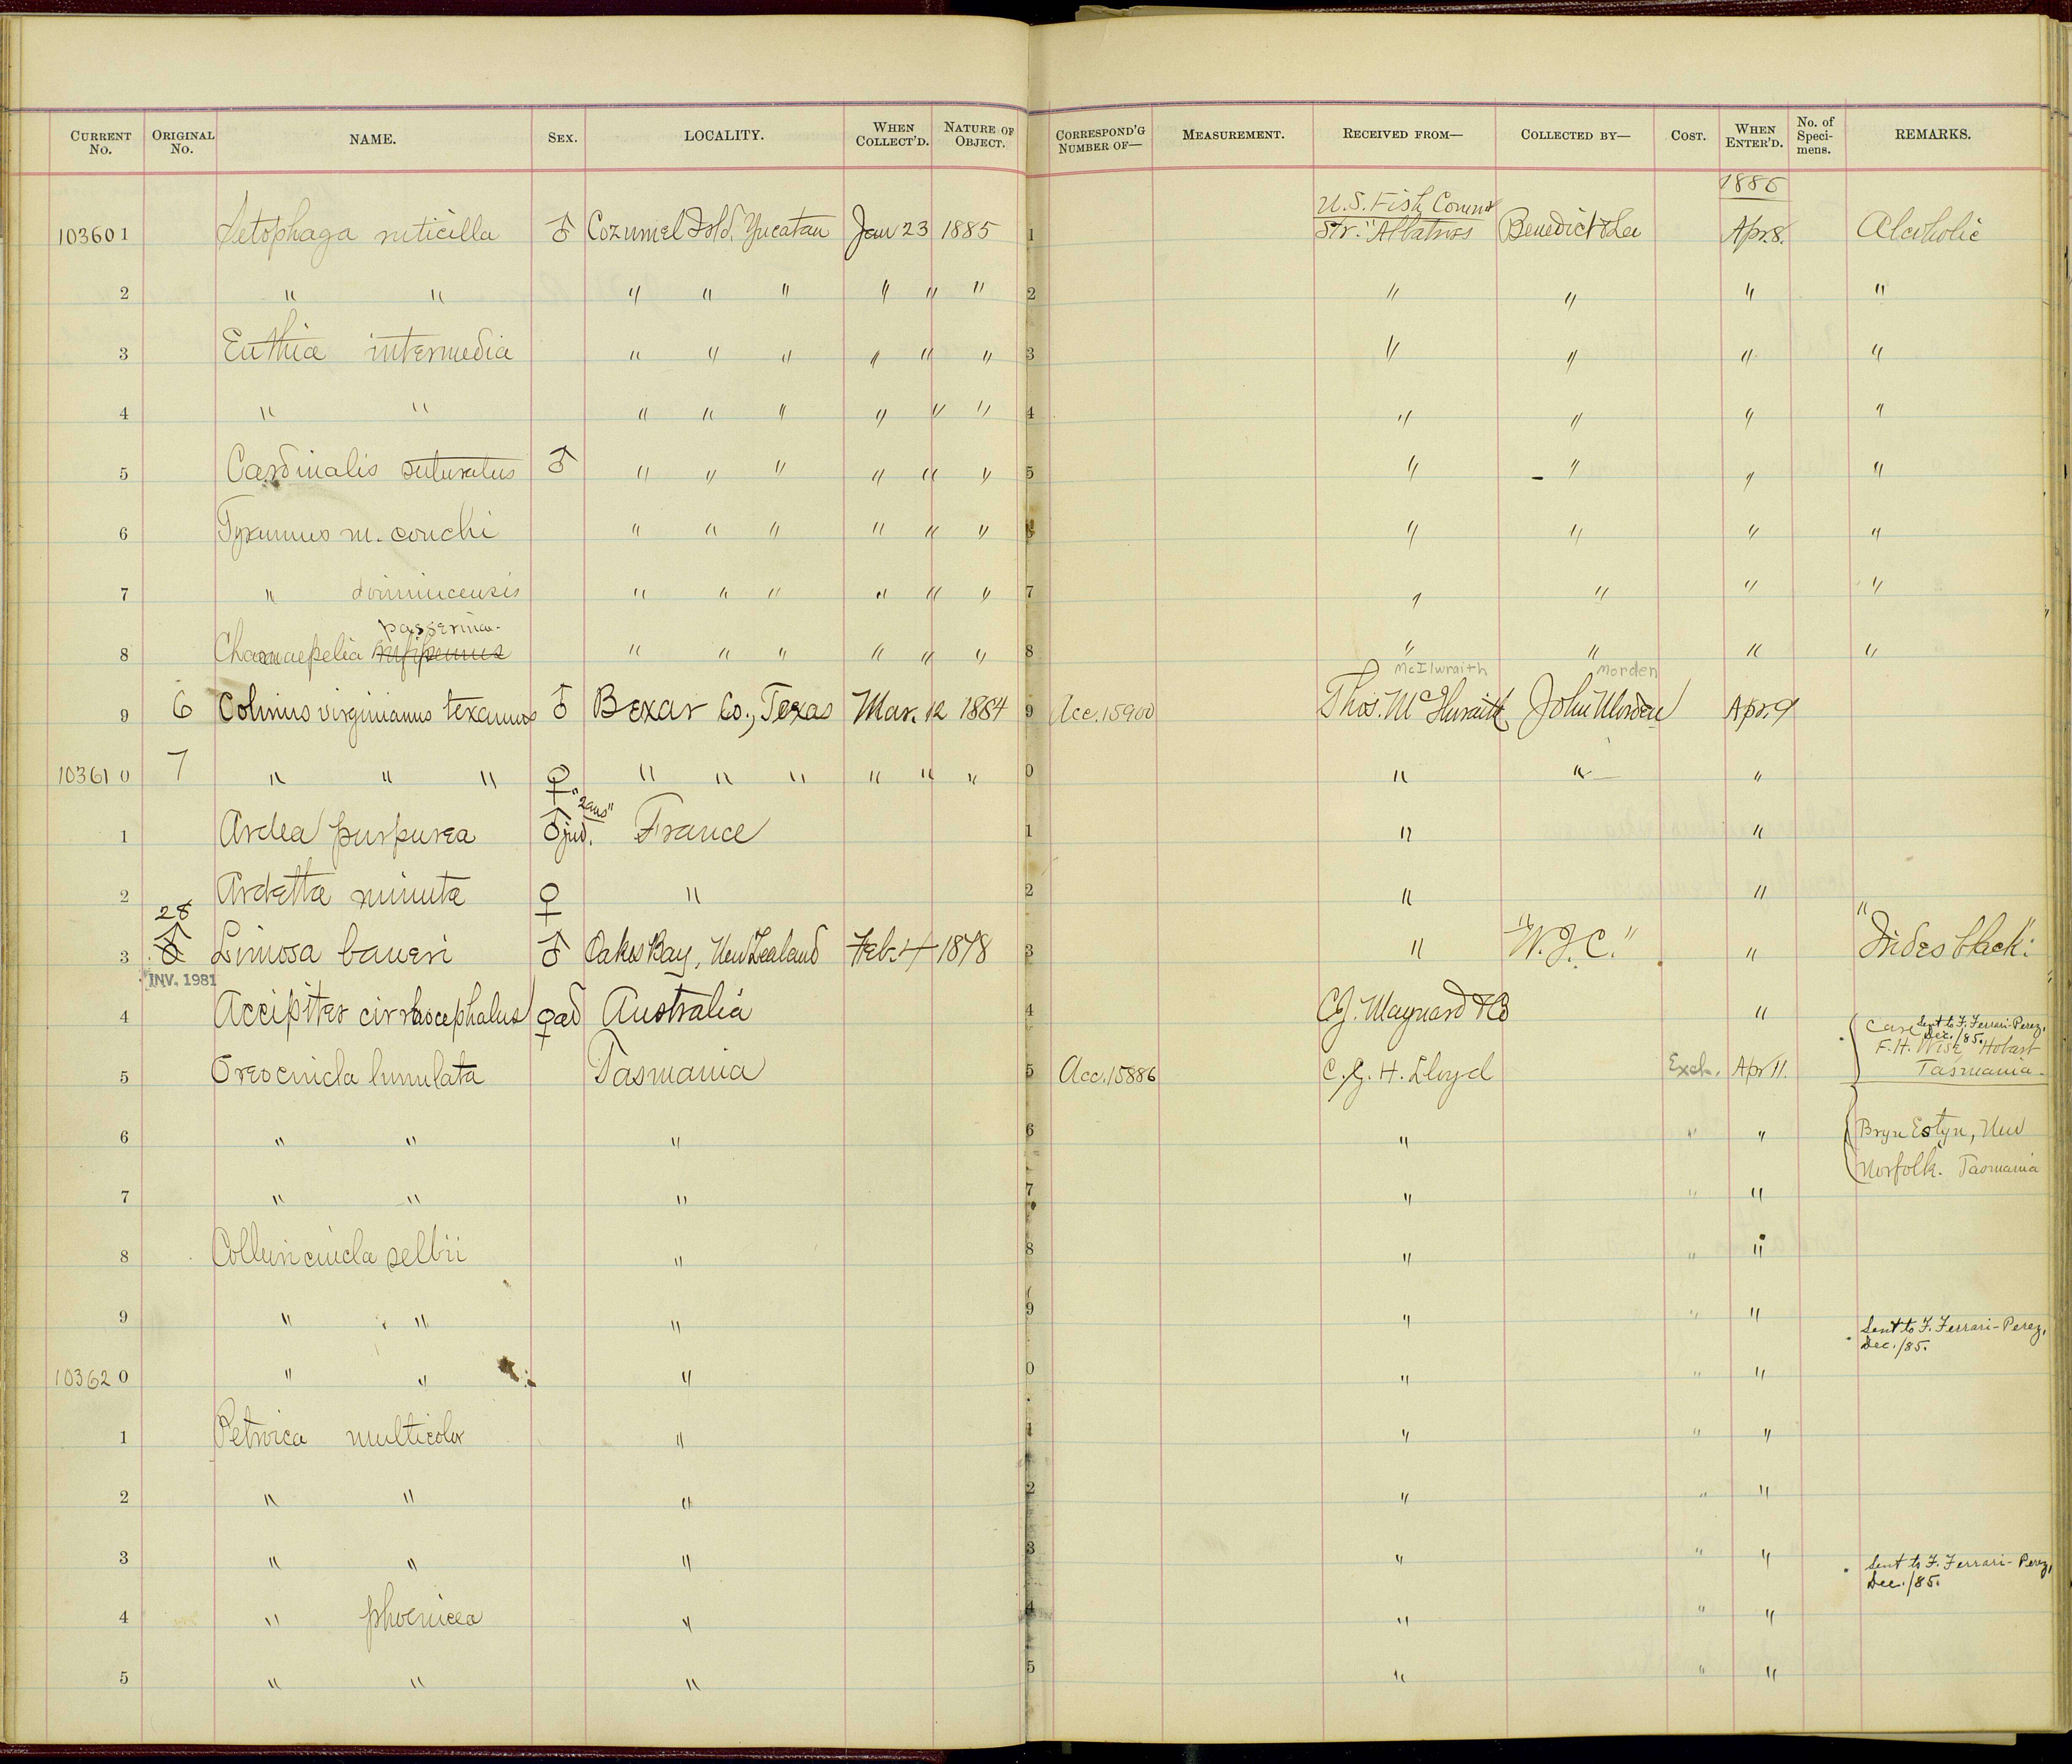 CURRENT No. ORIGINAL No. NAME. SEX. LOCALITY. WHEN COLLECT'D. NATURE OF OBJECT. CORRESPOND'G NUMBER OF— MEASUREMENT. RECEIVED FROM— COLLECTED BY— COST. WHEN ENTER'D. No. of Speci-mens. REMARKS.
1885
U.S. Fish Comm
103601 Setophaga ruticilla ♂ Cozumel Isld. Yucatan Jan 23 1885 1 Str. "Albatross Benedict & Lee Apr. 8. Alcoholic
2 " " " " " " " " 2 " " " "
3 Euthia intermedia " " " " " " 3 " " " "
4 " " " " " " " " 4 " " " "
5 Cardinalis saturatus ♂ " " " " " " 5 " " " "
6 Tyrannus m. couchi " " " " " " 6 " " " "
7 " dominicensis " " " " " " 7 " " " "
passerina
8 Chamaepelia rufipennis " " " " " " 8 " " " "
McIlwraith Morden
9 6 Colinus virginianus texanus ♂ Bexar Co., Texas Mar. 12 1884 9 Acc. 15900 Thos. McIlwraith John Morden Apr. 9
103610 7 " " " ♀ " " " " " " 0 " " "
1 Ardea purpurea ♂ juv. "2 ans" France 1 " "
2 Ardetta minuta ♀ " 2 " "
28
3 ♂ Limosa baueri ♂ Oakes Bay, New Zealand Feb. 4 1878 3 " "W. J. C." " "Irides black".
INV. 1981
4 Accipiter cirrhocephalus ♀ ad Australia 4 C.J. Maynard & Co "
Sent to F. Ferrari-Perez,
Dec./85.
Care
F. H. Wise Hobart
5 Oreocincla lunulata Tasmania 5 Acc. 15886 C. G. H. Lloyd Exch. Apr 11. Tasmania
6 " " " 6 " " " Bryn Estyn, New
Norfolk. Tasmania
7 " " " 7 " " "
8 Colluricincla selbii " 8 " " "
9 " " " 9 " " " Sent to F. Ferrari-Perez,
Dec./85.
103620 " " " 0 " " "
1 Petroica multicolor " 1 " " "
2 " " " 2 " " "
3 " " " 3 " " " Sent to F. Ferrari-Perez,
Dec./85.
4 " phoenicea " 4 " " "
5 " " " 5 " " "